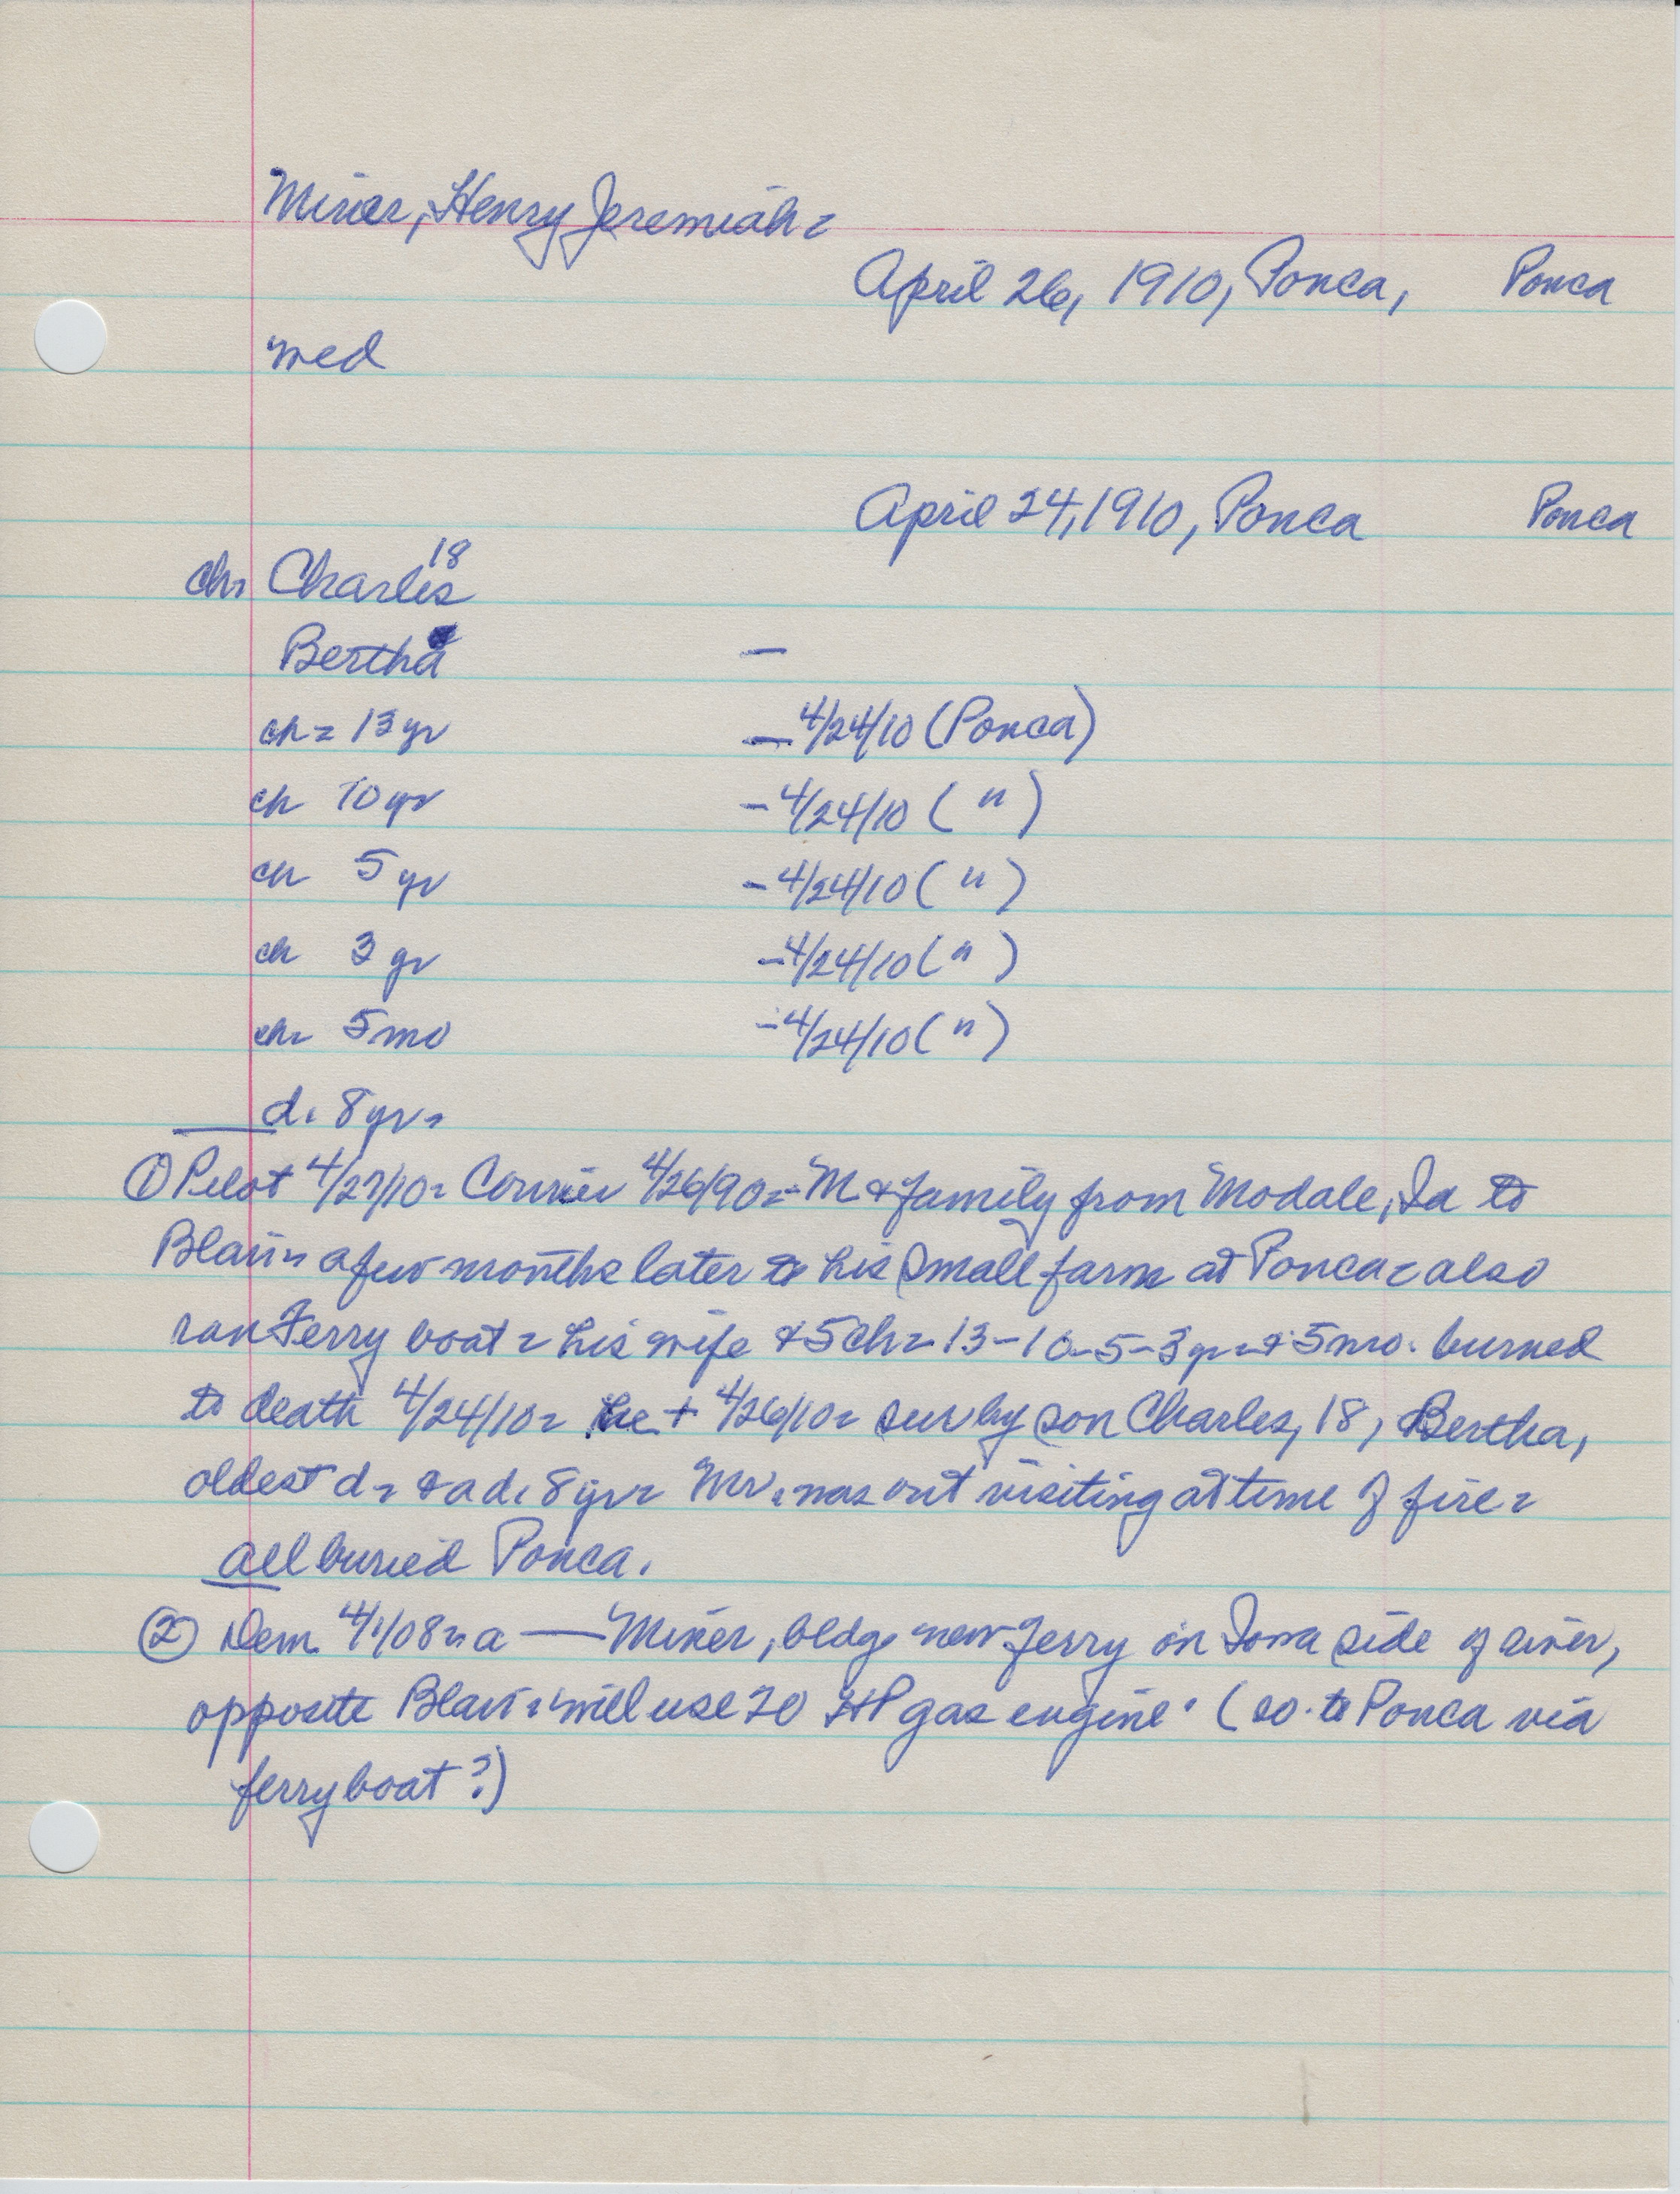 Miner, Henry Jeremiah=
April 26, 1910, Ponca, Ponca
med
April 24, 1910, Ponca Ponca
18
ch= Charles
Bertha —
ch= 13 yr — 4/24/10 (Ponca)
ch 10 yr - 4/24/10 ( " )
ch 5 yr - 4/24/10 ( " )
ch 3 yr - 4/24/10 ( " )
ch= 5 mo - 4/24/10 ( " )
d. 8 yr=
① Pilot 4/27/10= Courier 4/26/90=- M & family from Modale, Ia to
Blair= a few months later to his small farm at Ponca= also
ran Ferry boat= his wife & 5 ch= 13-10-5-3 yr= & 5 mo. burned
to death 4/24/10= he + 4/26/10= sur by son Charles, 18, Bertha,
oldest d= & a d. 8 yr= Mr. was out visiting at time of fire=
all buried Ponca.
② Dem 4/1/08= a — Miner, bldg new ferry on Iowa side of river,
opposite Blair= will use 20 HP gas engine. (so. to Ponca via
ferry boat?)